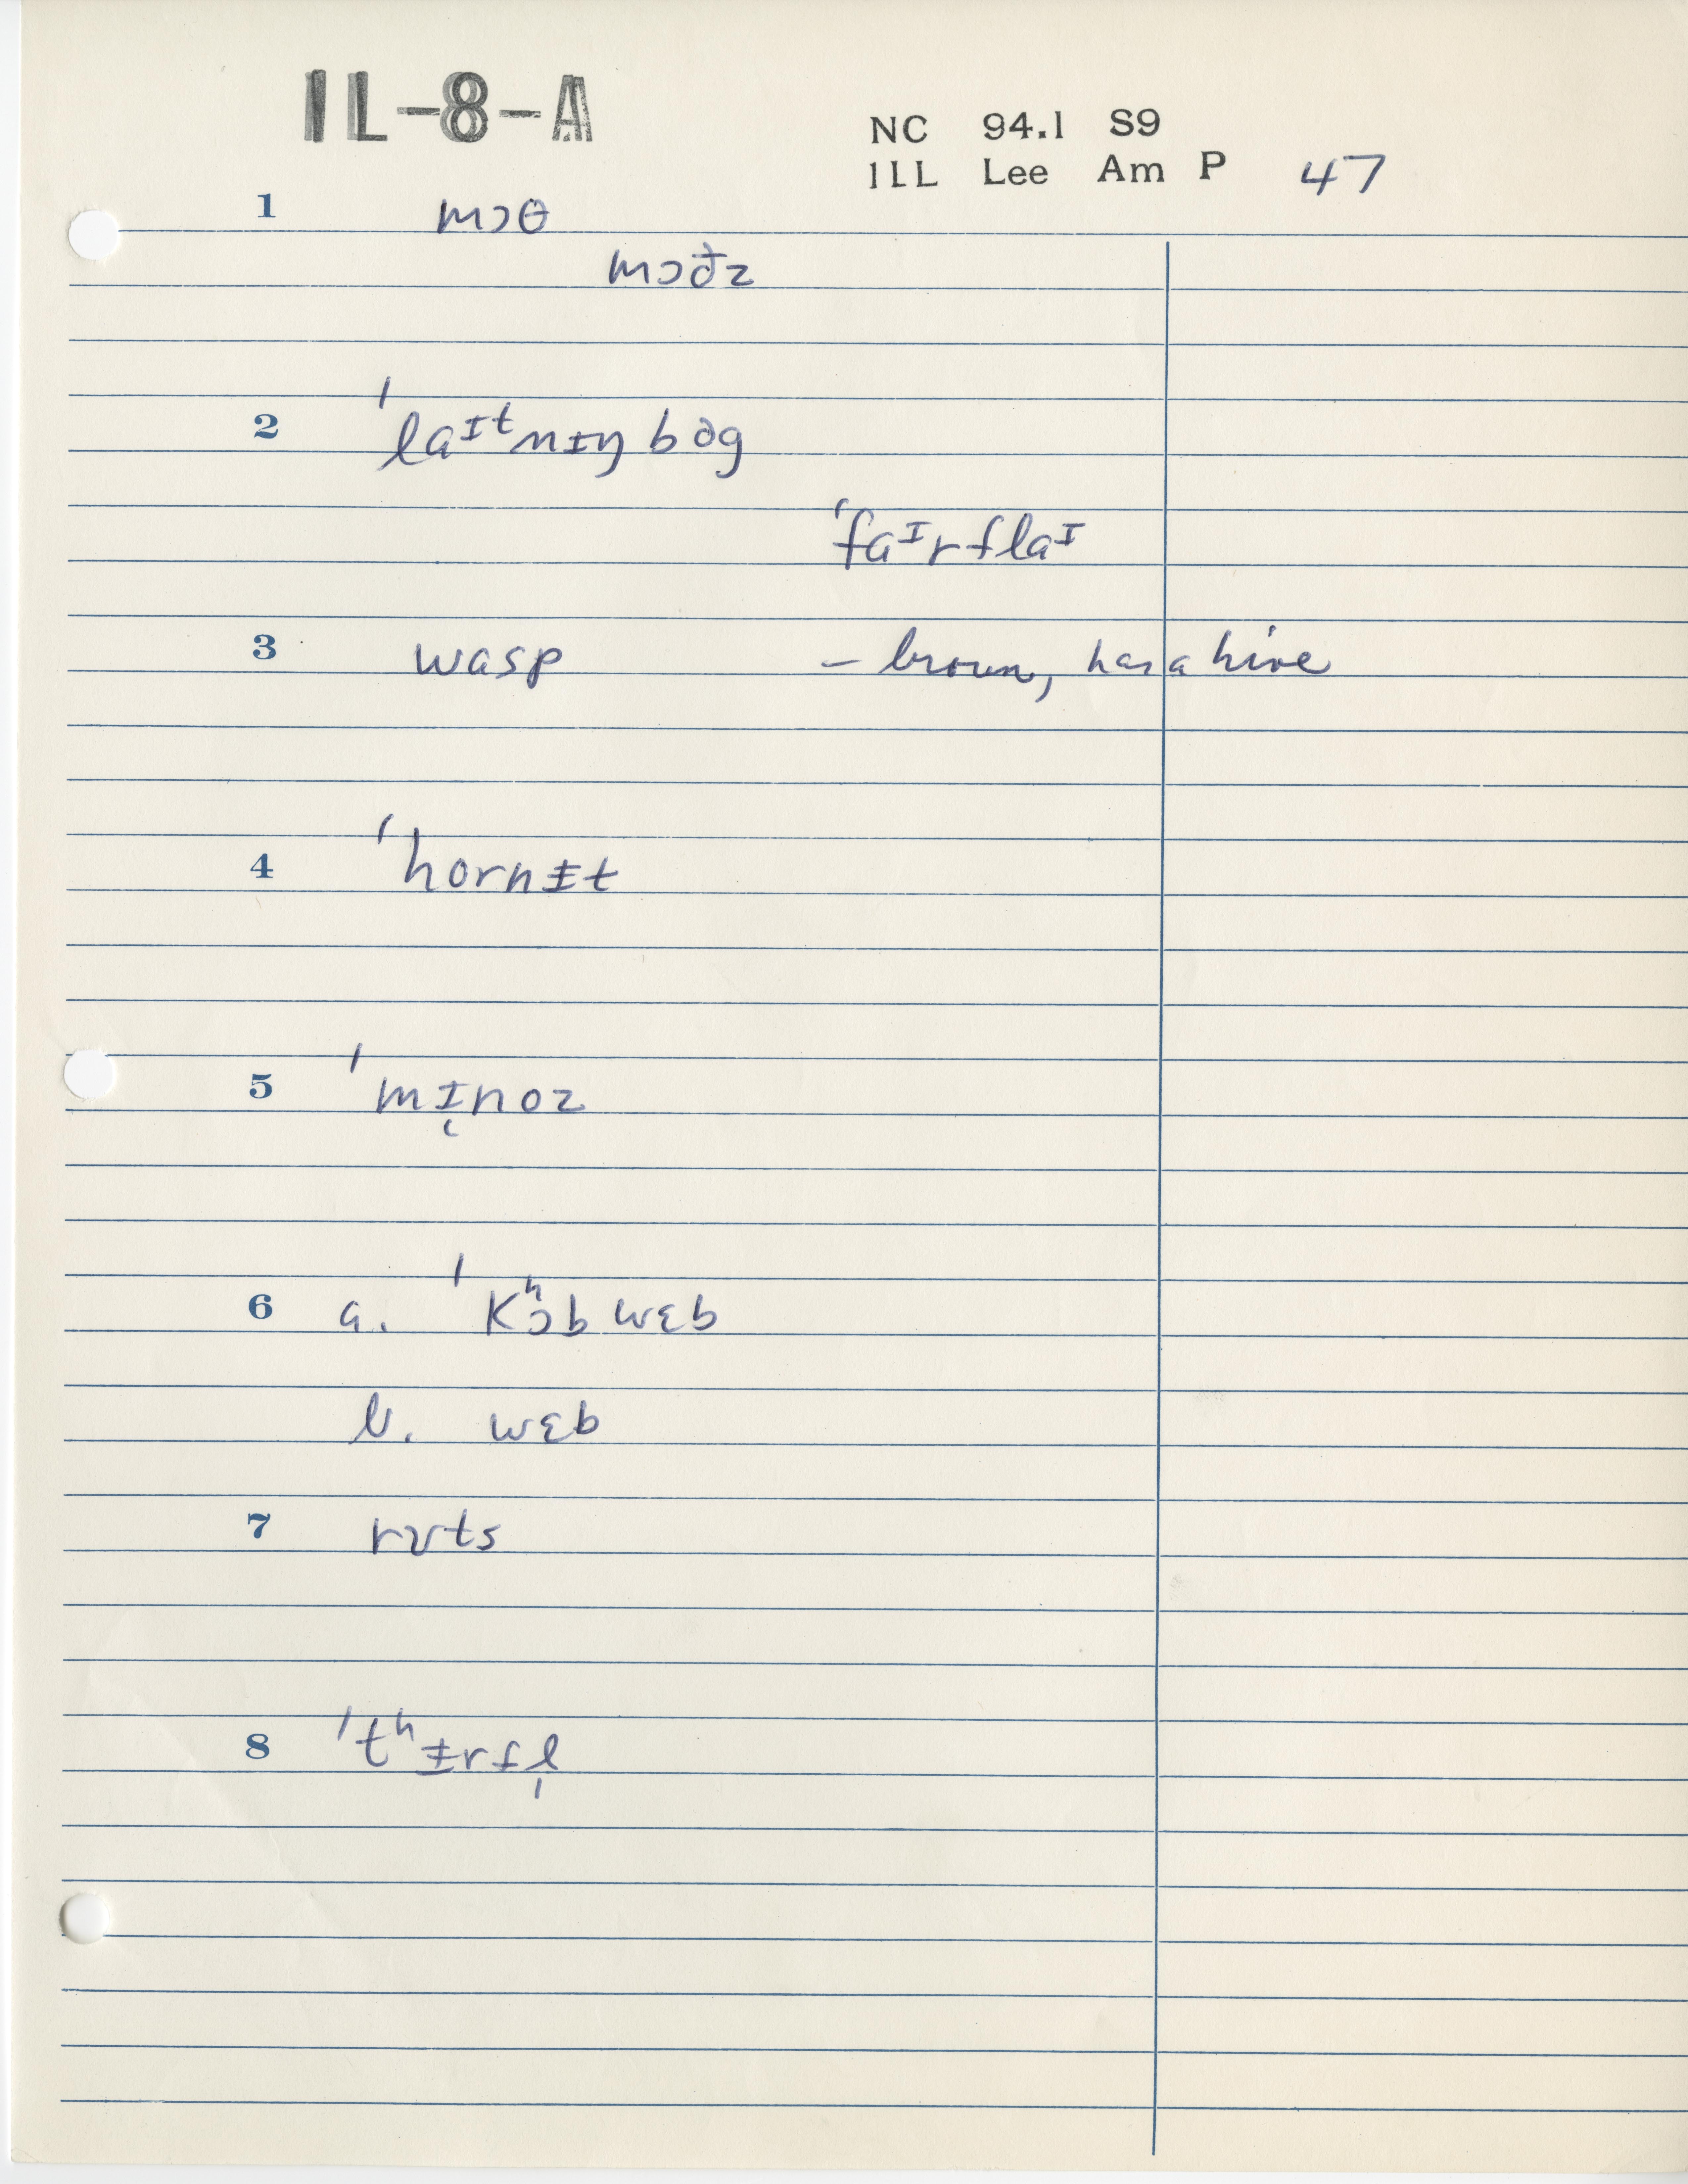 IL-8-A
NC 94.1 S9
ILL Lee Am P 47
1 mɔθ
mɔðz
2 ˈlaᴵᵗnɪŋ bəg
ˈfaᴵrflaᴵ
3 wasp – brown, has a hive
4 ˈhornɪ̵t
5 ˈmɪ̜noz
6 a. ˈKʰɔb wɛb
b. wɛb
7 rʊts
8 ˈtʰɪ̵rfl̩